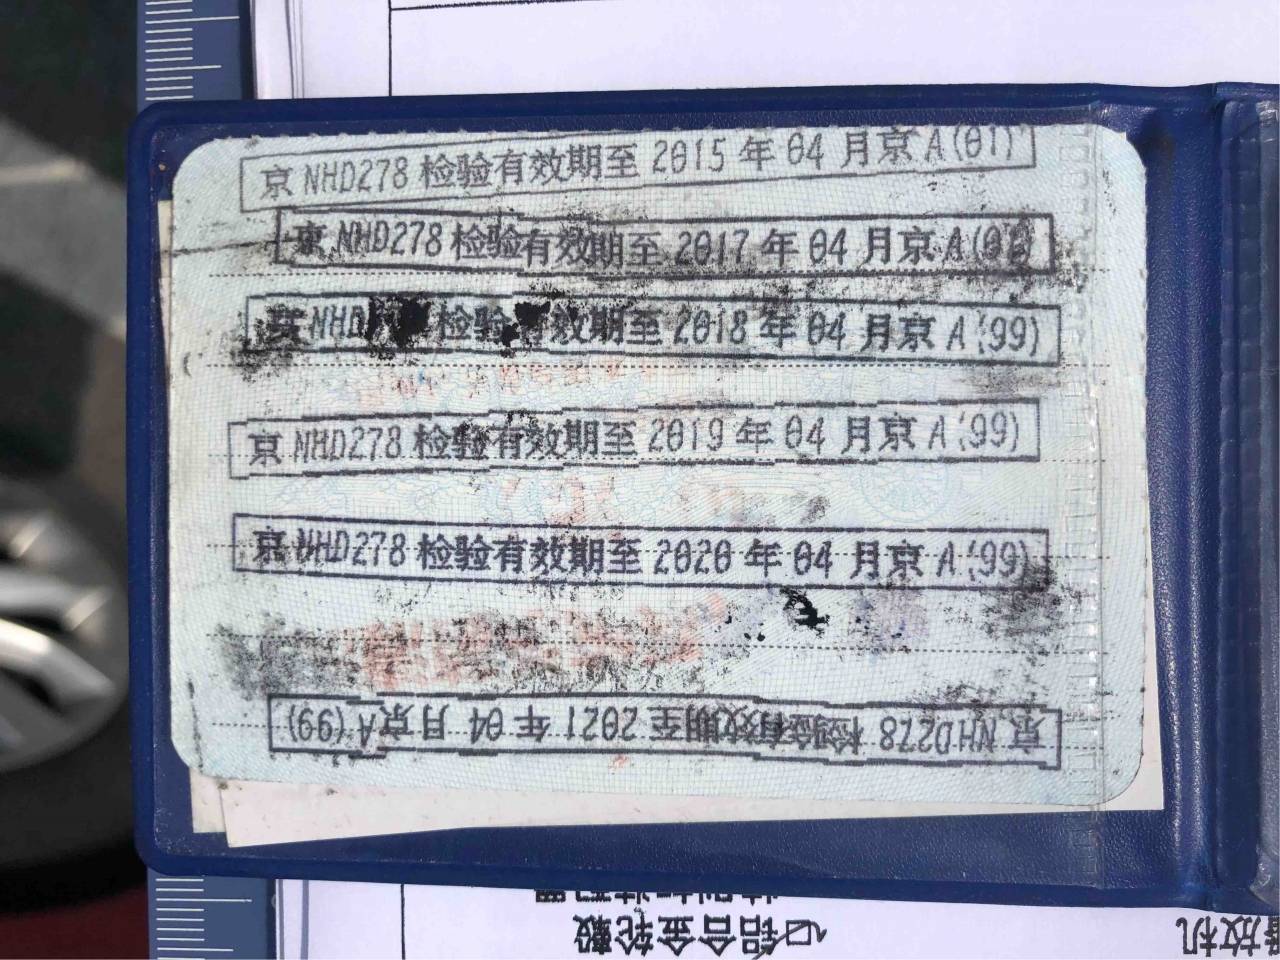 京NHD278检验有效期至2015年04月京A(01)
京NHD278检验有效期至2017年04月京A
京NHD 检验有效期至2018年04月京A(99)
京NHD278检验有效期至2019年04月京A(99)
京NHD278检验有效期至2020年04月京A(99)
京NHD278检验有效期至2021年04月京A(99)
铝合金轮毂
放机